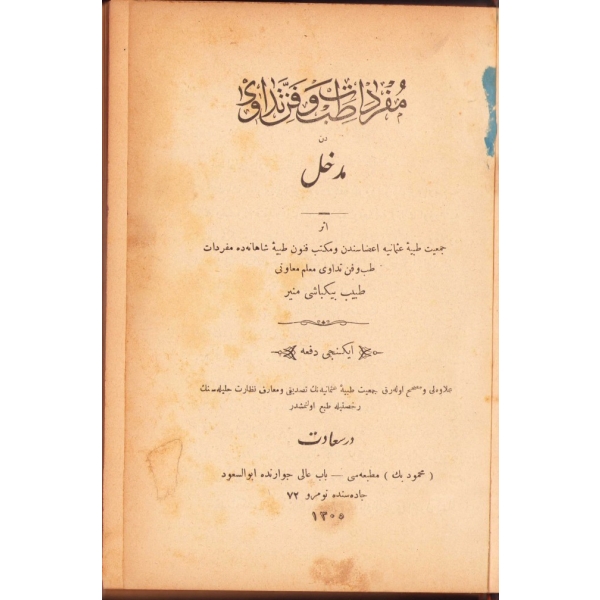 مفردات طب و فن تداوی
دن
مدخل
اثر
جمعیت طبیۀ عثمانیه اعضاسندن و مکتب فنون طبیۀ شاهانه‌ده مفردات
طب و فن تداوی معلم معاونی
طبیب بیکباشی منیر
ایکنجی دفعه
علاوه‌لی و مصحح اوله‌رق جمعیت طبیۀ عثمانیه‌نك تصدیق و معارف نظارت جلیله‌سنك
رخصتیله طبع اولنمشدر
در سعادت
( محمود بك ) مطبعه‌سی — باب عالی جوارنده ابو السعود
جاده‌سنده نومرو ٧٢
١٣٠٥